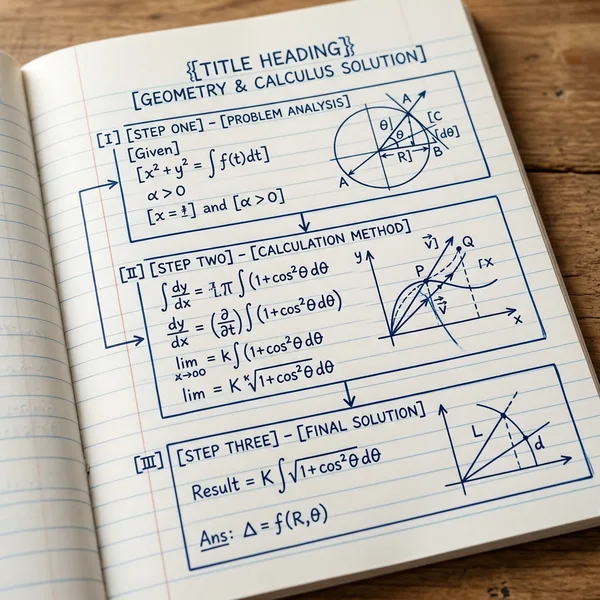 {{[TITLE HEADING]}}
[GEOMETRY & CALCULUS SOLUTION]
[I] [STEP ONE] - [PROBLEM ANALYSIS]
[Given]
[x² + y² = ∫ f(t)dt]
α > 0
[x = ] and [α > 0]
A
θ]
θ
[C
[dθ]
R]
B
A
[II] [STEP TWO] - [CALCULATION METHOD]
∫ dy/dx = π ∫ (1+cos²θ dθ
dy/dx = (∂/∂t) ∫ (1+cos²θ dθ)
lim x→∞ = K ∫ (1+cos²θ dθ
lim = K ᴷ√1+cos²θ dθ
y
V⃗]
Q
P
rx
V⃗
x
[III] [STEP THREE] - [FINAL SOLUTION]
Result = K ∫ √1+cos²θ dθ
Ans: Δ = f(R,θ)
L
d